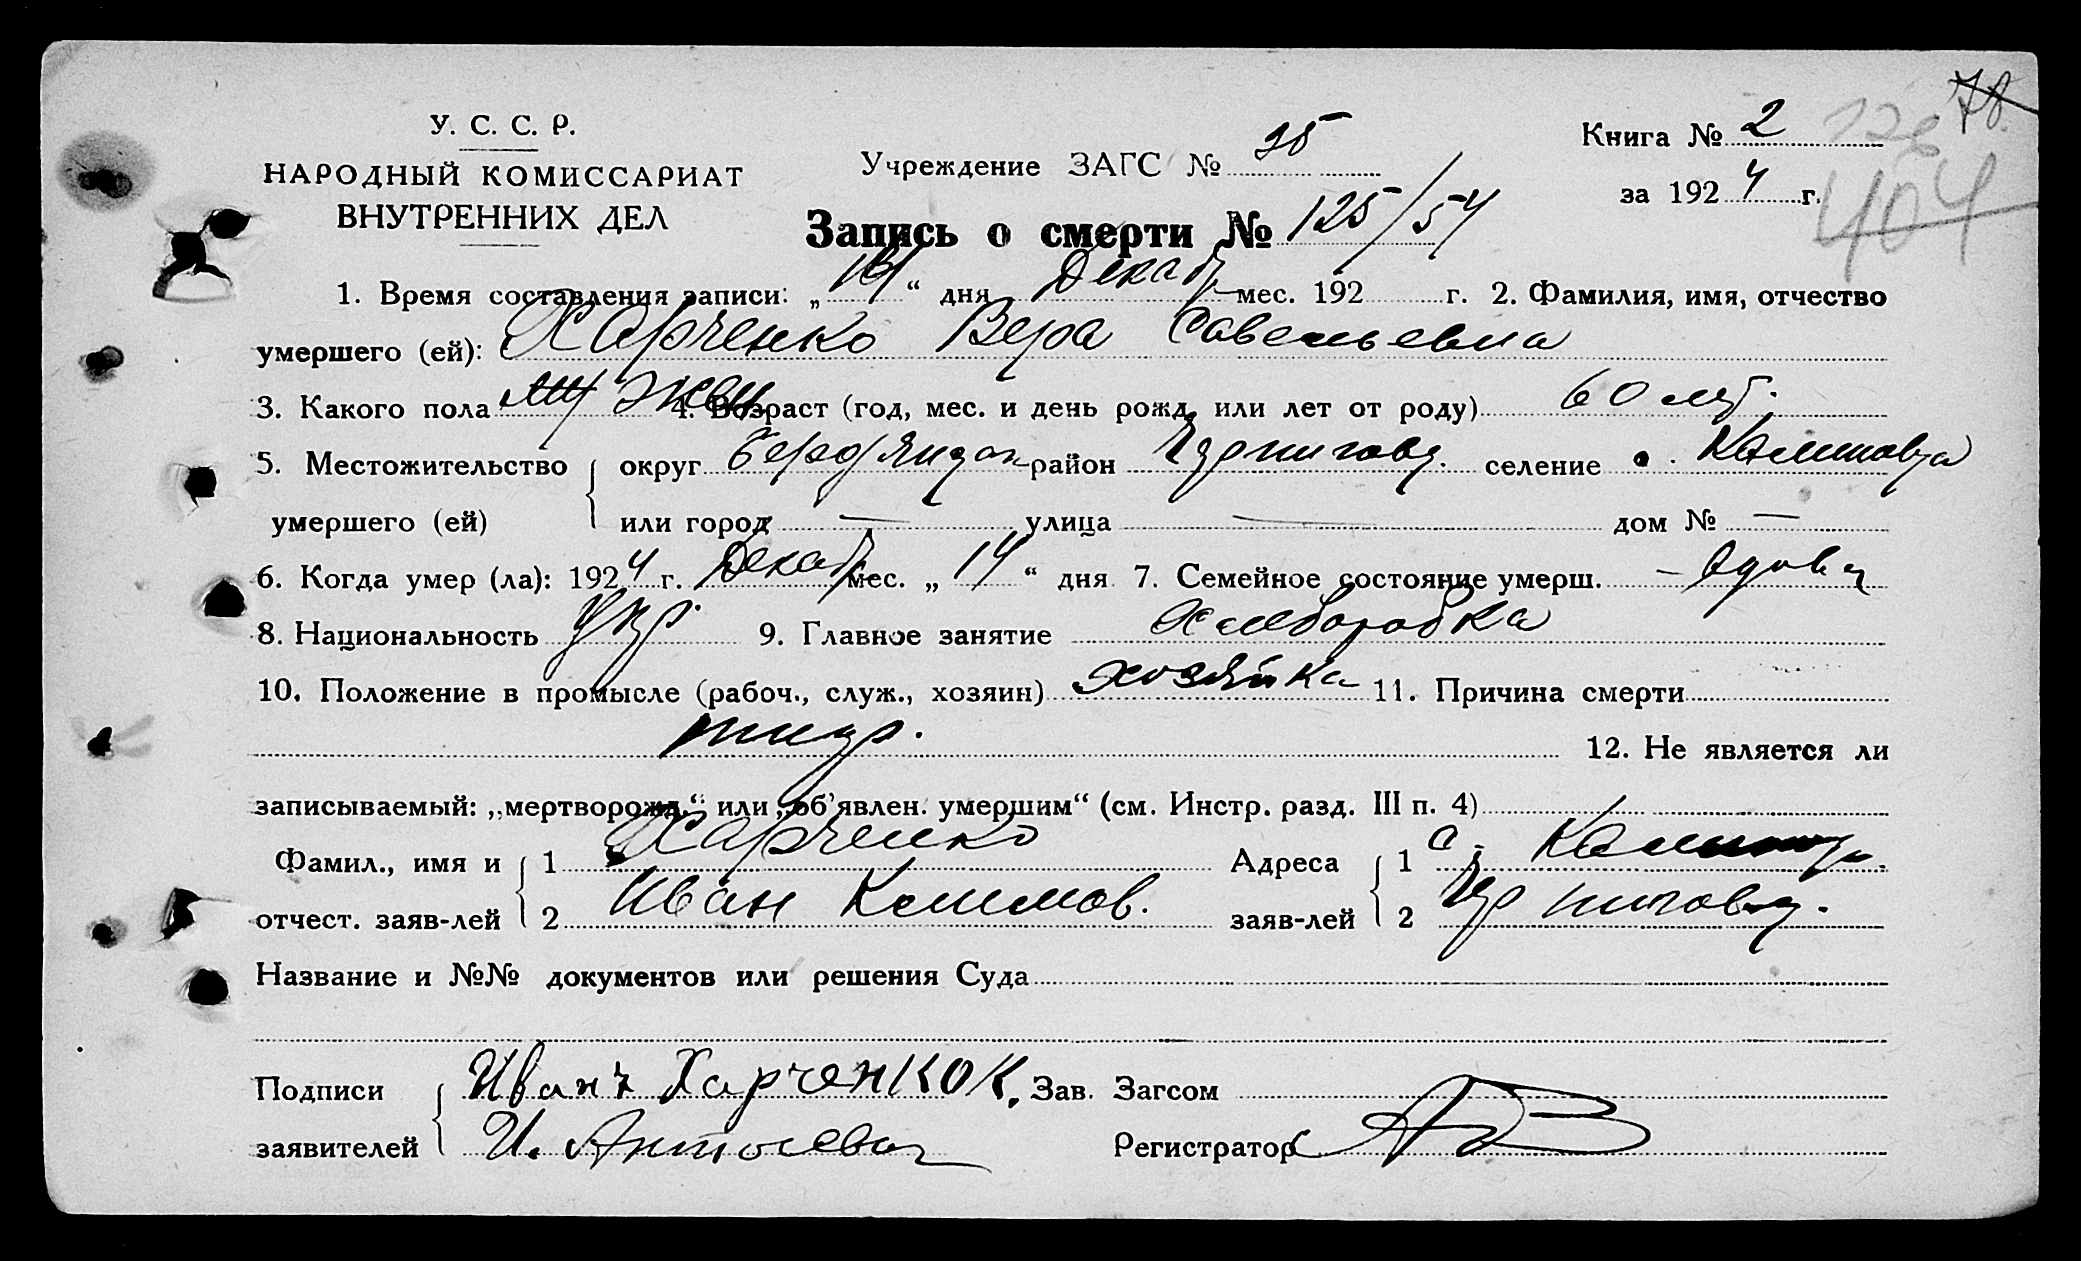 У. С. С. Р.
НАРОДНЫЙ КОМИССАРИАТ
ВНУТРЕННИХ ДЕЛ
Учреждение ЗАГС №
Книга № 2
за 1924 г.
404
Запись о смерти № 125/54
1. Время составления записи: „ “ дня Декаб мес. 192 г. 2. Фамилия, имя, отчество
умершего (ей): Харченко Вера Савельевна
3. Какого пола жен 4. Возраст (год, мес. и день рожд. или лет от роду) 60 лет.
5. Местожительство округ район селение
умершего (ей) или город — улица — дом № —
6. Когда умер (ла): 1924 г. Декаб мес. „ 14 “ дня 7. Семейное состояние умерш. — вдова
8. Национальность укр. 9. Главное занятие хлеборобка
10. Положение в промысле (рабоч., служ., хозяин) хозяйка 11. Причина смерти
12. Не является ли
записываемый: „мертворожд.“ или „об’явлен. умершим“ (см. Инстр. разд. III п. 4)
Фамил., имя и 1 Харченко Адреса 1
отчест. заяв-лей 2 Иван заяв-лей 2
Название и №№ документов или решения Суда
Подписи Иванъ Харченко К. Зав. Загсом
заявителей И. Регистратор